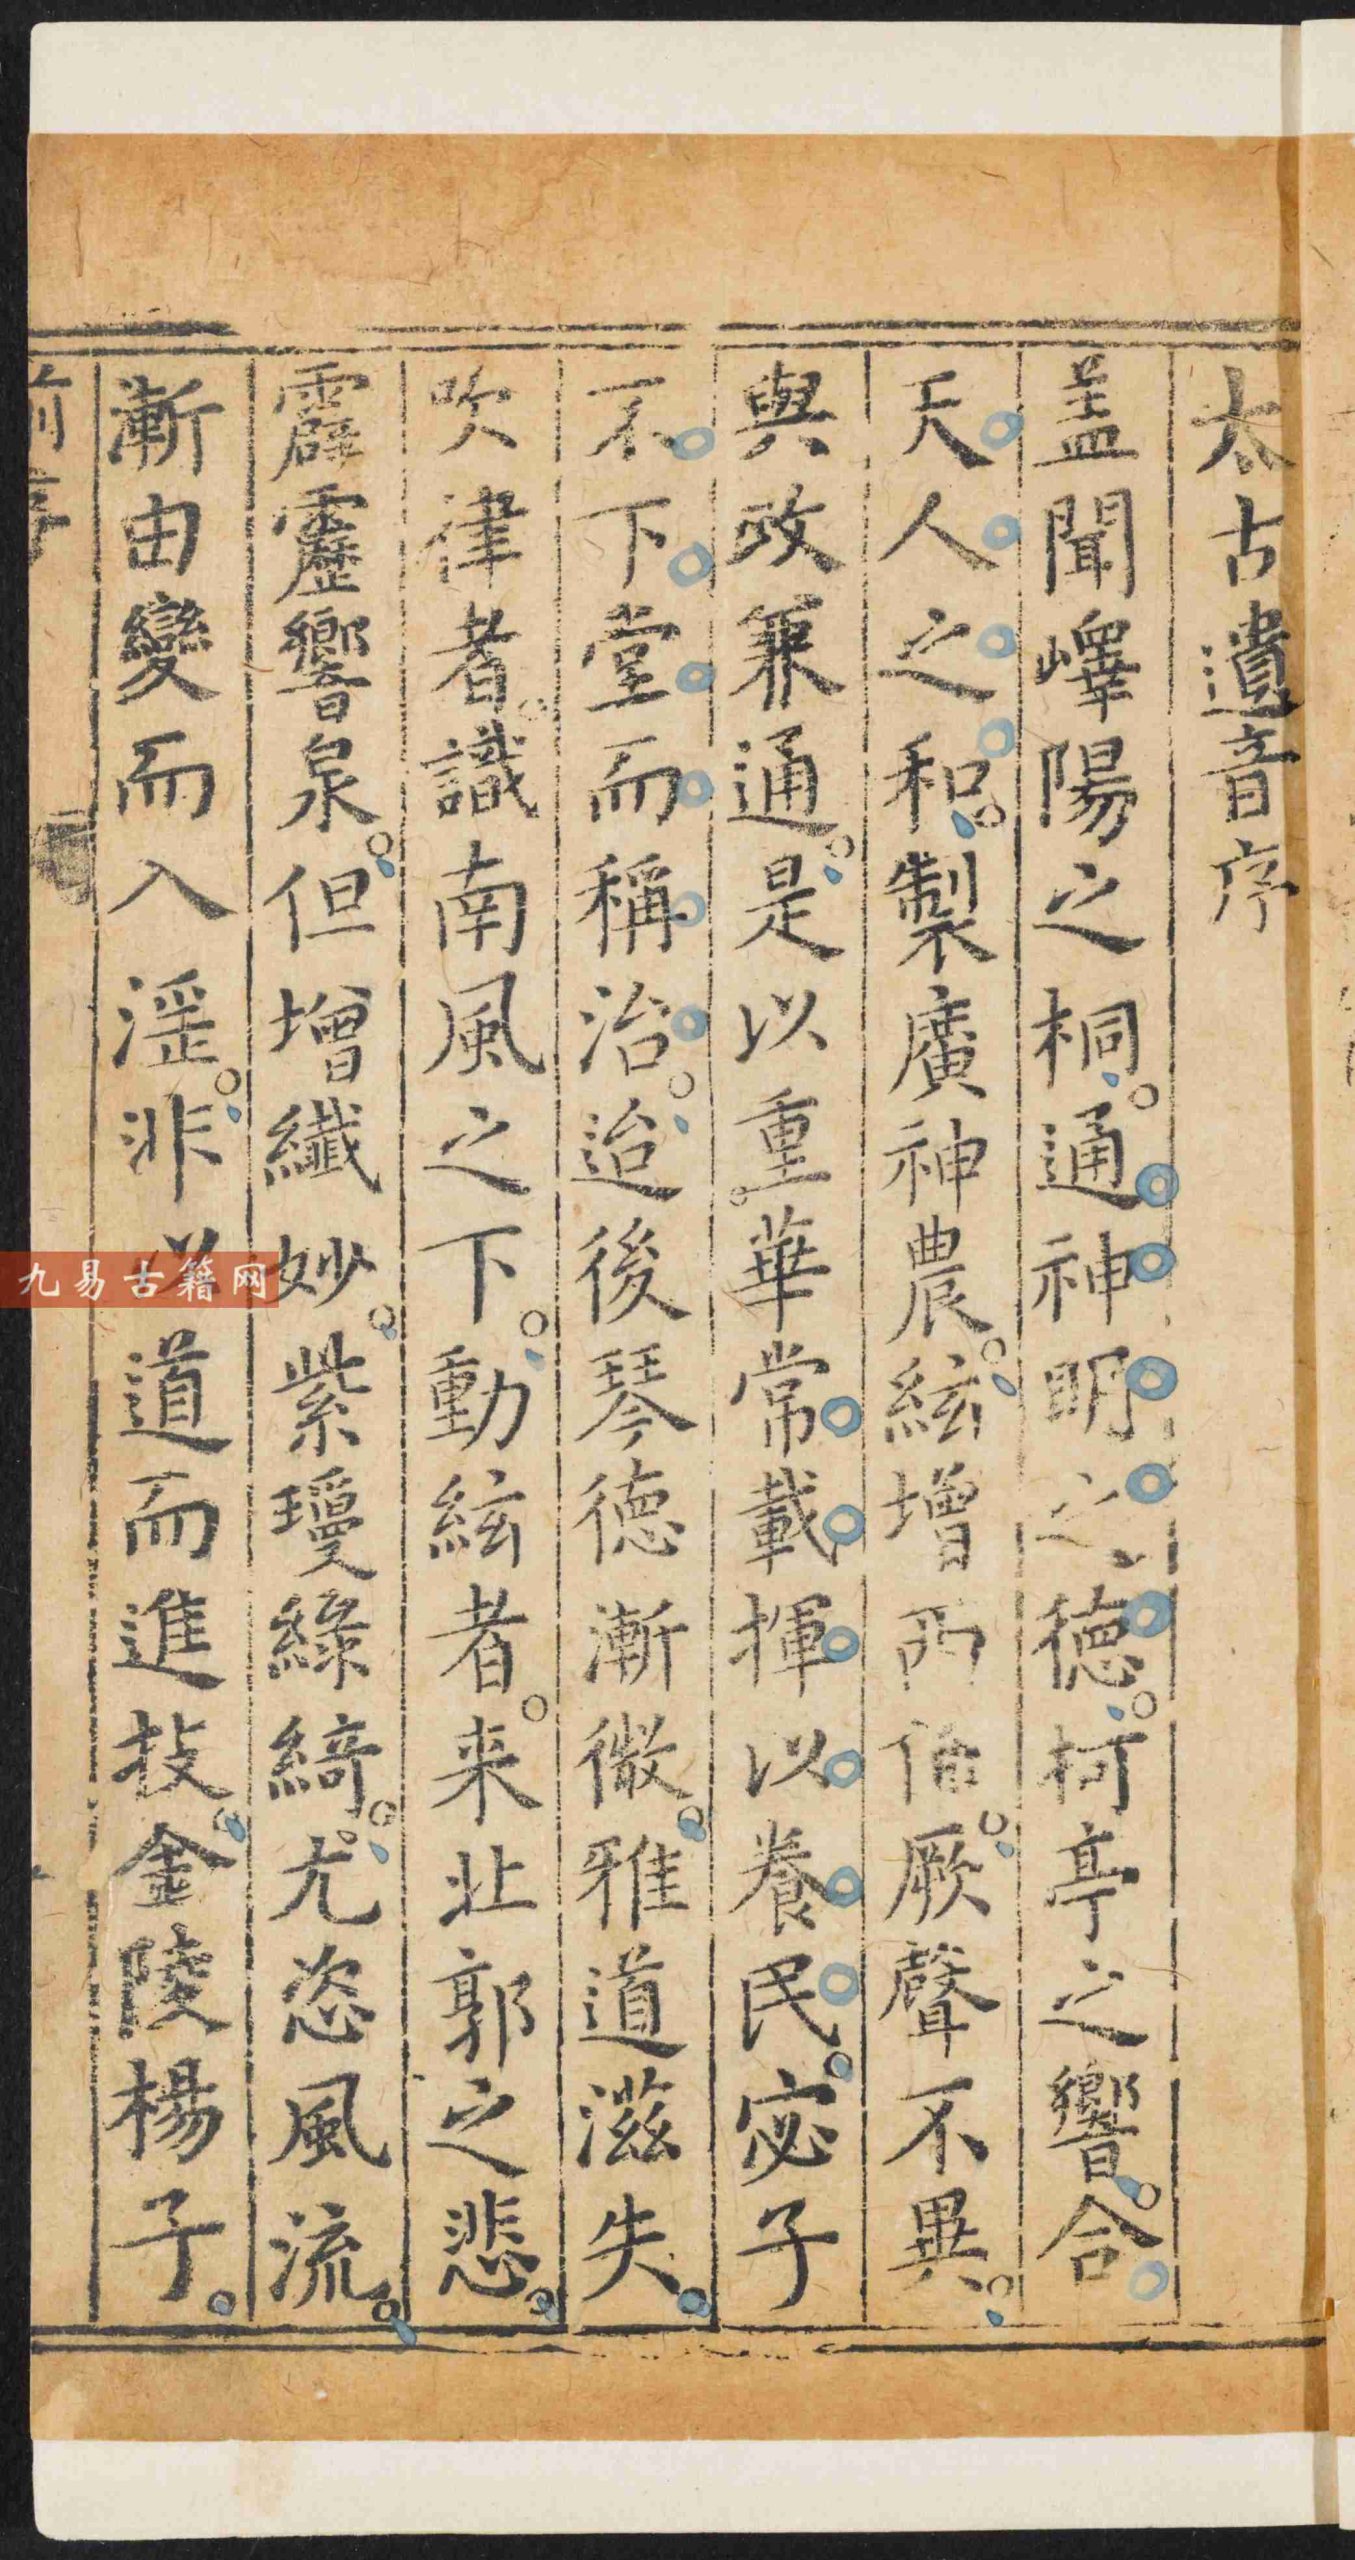 太古遺音序
盖聞嶧陽之桐通神明之徳柯亭之響合
天人之和製廣神農絃增西伯厥聲不異
與政兼通是以重華常載揮以養民宓子
不下堂而稱治迨後琴徳漸微雅道滋失
吹律者識南風之下動絃者来北郭之悲
霹靂響泉但增纖妙紫瓊綠綺尤恣風流
漸由變而入淫非 道而進技金陵楊子
前序
九易古籍网